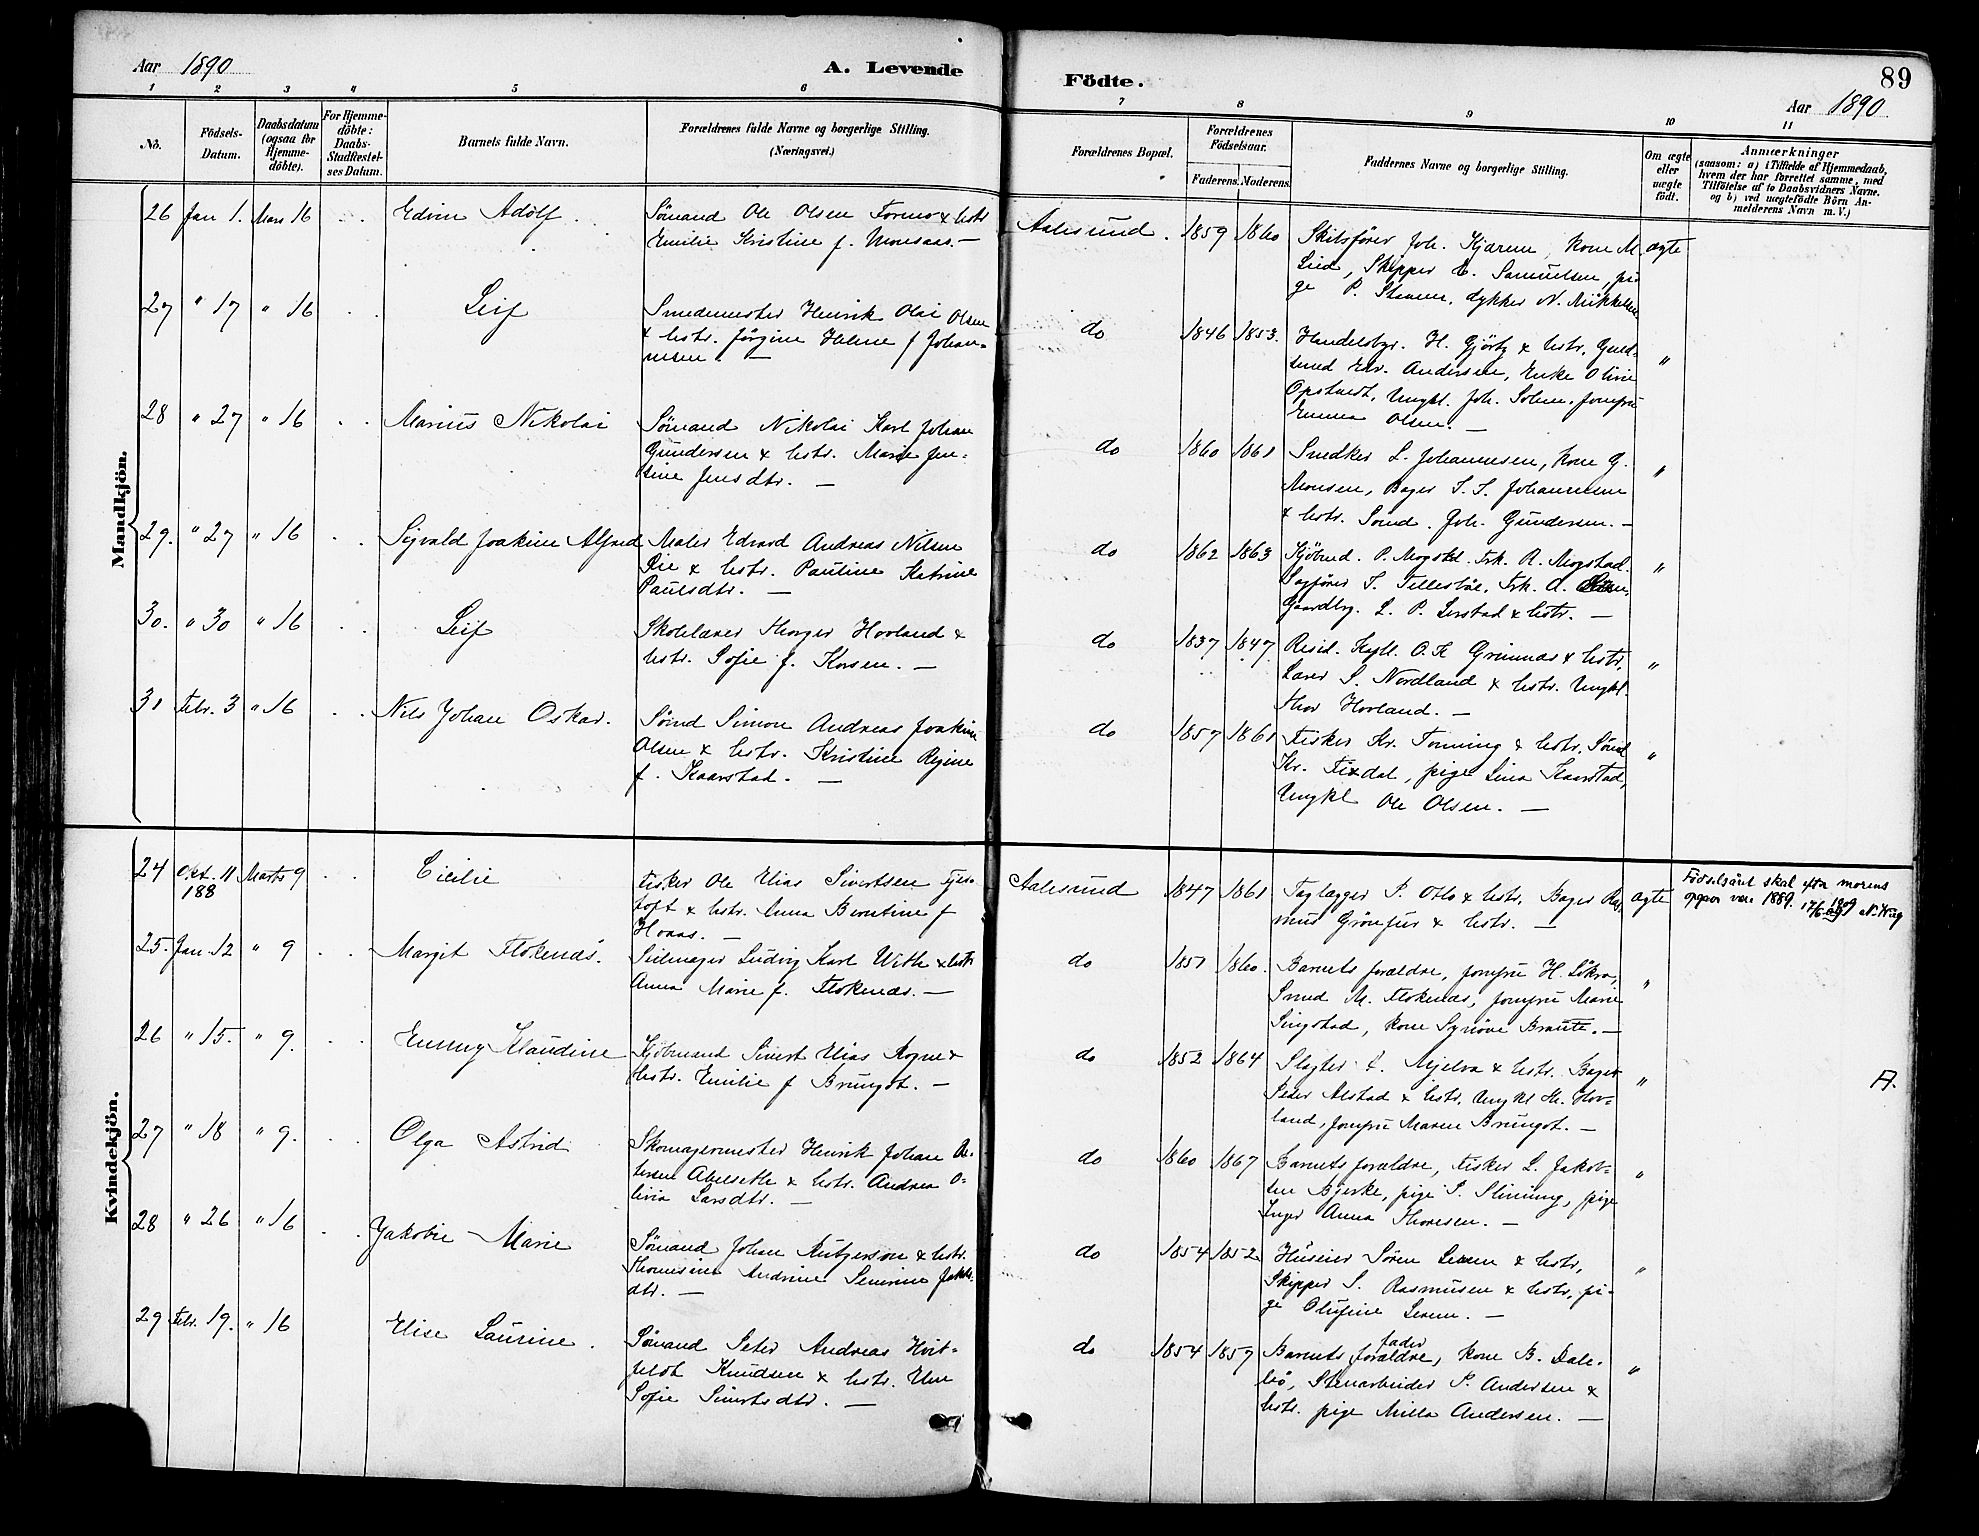 Aar 1890 A. Levende
Födte. Aar 1890 89
1 2 3 4 5 6 7 8 9 10 11
No. Födsels-Datum. Daabsdatum (ogsaa for Hjemmedöbte). For Hjemmedöbte: Daabs-Stadfestelses Datum. Barnets fulde Navn. Forældrenes fulde Navne og borgerlige Stilling. (Næringsvei.)
Forældrenes Bopæl. Forældrenes Födselsaar. Faderens. Moderens. Faddernes Navne og borgerlige Stilling. Om ægte eller uægte födt. Anmærkninger (saasom: a) i Tilfælde af Hjemmedaab, hvem der har forrettet samme, med Tilföielse af to Daabsvidners Navne. og b) ved uægtefödte Börn Anmelderens Navn m.V.)
Mandkjön.
26 Jan 1. Mars 16 Edvin Adolf. Sömand Ole Olsen Formo & hstr
Emilie Kristine f. Monsaas. —
Aalesund. 1859 1860 Skibsfører Joh. Kjærem, kone M.
Lied, Skipper E. Samuelsen, pi-
ge P. Stavem, dykker N. Mikkelsen
ægte
27 " 17 " 16 Leif Smedemester Henrik Olai Olsen
& hstr. Jörgine Helene f Johan-
nesen. —
do 1846 1853. Handelsbgr. H. Gjörtz & hstr. Guld-
smed Edv. Andersen, Enke Oline
Opstvedt, Ungkl. Joh. Solem, jomfru
Emma Olsen. — "
28 " 27 " 16 Marius Nikolai Sömand Nikolai Karl Johan
Gundersen & hstr. Marie Jen-
sine Jensdtr. —
do 1860 1861 Snedker L. Johannesen, kone G.
Monsen, Bager S. S. Johannesen
& hstr. Sömd. Joh. Gundersen. — "
29. " 27 " 16 Sigvald Joakim Alfred Maler Edvard Andreas Nilsen
& hstr. Pauline Katrine
Paulsdtr. —
do 1862 1863 Kjöbmd. P. Mogstad. Frk. R. Mogstad.
Sagförer S. Tellesbö. Frk. A.
Gaardbg. L. P. Lerstad & hstr. — "
30. " 30 " 16 Leif Skolelærer Thorger Hovland &
hstr. Sofie f. Korsen. —
do 1837 1847 Resid. Kpll. O. K Grimnæs & hstr,
Lærer S. Nordland & hstr. Ungkl.
Thor Hovland. — "
31 Febr. 3 " 16 Nils Johan Oskar. Sömd Simon Andreas Joakim
Olsen & hstr. Kristine Regine
f. Kaarstad. —
do 1857 1861 Fisker Kr. Tonning & hstr. Sömd
Kr. Fixdal, pige Lina Kaarstad,
Ungkl Ole Olsen. — "
Kvindekjön.
24 Okt. 11 188 Marts 9 Cicilie Fisker Ole Elias Sivertsen Fjes-
toft & hstr. Anna Berntine f
Hoaas. —
Aalesund 1847 1861 Taglægger P. Otto & hstr. Bager Ras-
mus Grönfur & hstr. — ægte
Födselsåret skal efter morens
opgav være 1889. 17/6 1909
25. Jan. 12 " 9 Margit Flokenæs. Seilmager Ludvig Karl With & hstr
Anna Marie f. Flokenæs. —
do 1851 1860. Barnets forældre, jomfru H. Lökra,
Smed M. Flokenæs, jomfru Marie
Singstad, kone Synöve Braute. — "
26 " 15. " 9. Emmy Klaudine Kjöbmand Sivert Elias Rogne &
Hstr. Emilie f Brungot. —
do 1852 1864 Slagter L. Mjelva & hstr. Bager
Peder Alstad & hstr. Ungkl M. Hov-
land, jomfru Maren Brungot. — "
A.
27 " 18 " 9. Olga Astrid Skomagermester Henrik Johan Pe-
tersen Abelseth & hstr. Andrea O-
livia Larsdtr. —
do 1860 1867 Barnets forældre, Fisker L. Jakob-
sen Bjerke, pige P. Slinning, pige
Inger Anna Thoresen. — "
28 " 26 " 16 Jakobie Marie Sömand Johan Rutgerson & hstr.
Thomsine Andrine Severine Jakbs.
dtr. —
do 1854 1852 Huseier Sören Leren & hstr,
Skipper S. Rasmusen & hstr, pi-
ge Olufine Leren. — "
29 Febr. 19. " 16 Elise Laurine. Sömand Peter Andreas Hvit-
feldt Knudsen & hstr. Une
Sofie Sivertsdtr. —
do 1854 1857 Barnets fader forældre, kone B. Dals-
bö, Stenarbeider P. Andersen &
hstr. pige Milla Andersen. — "